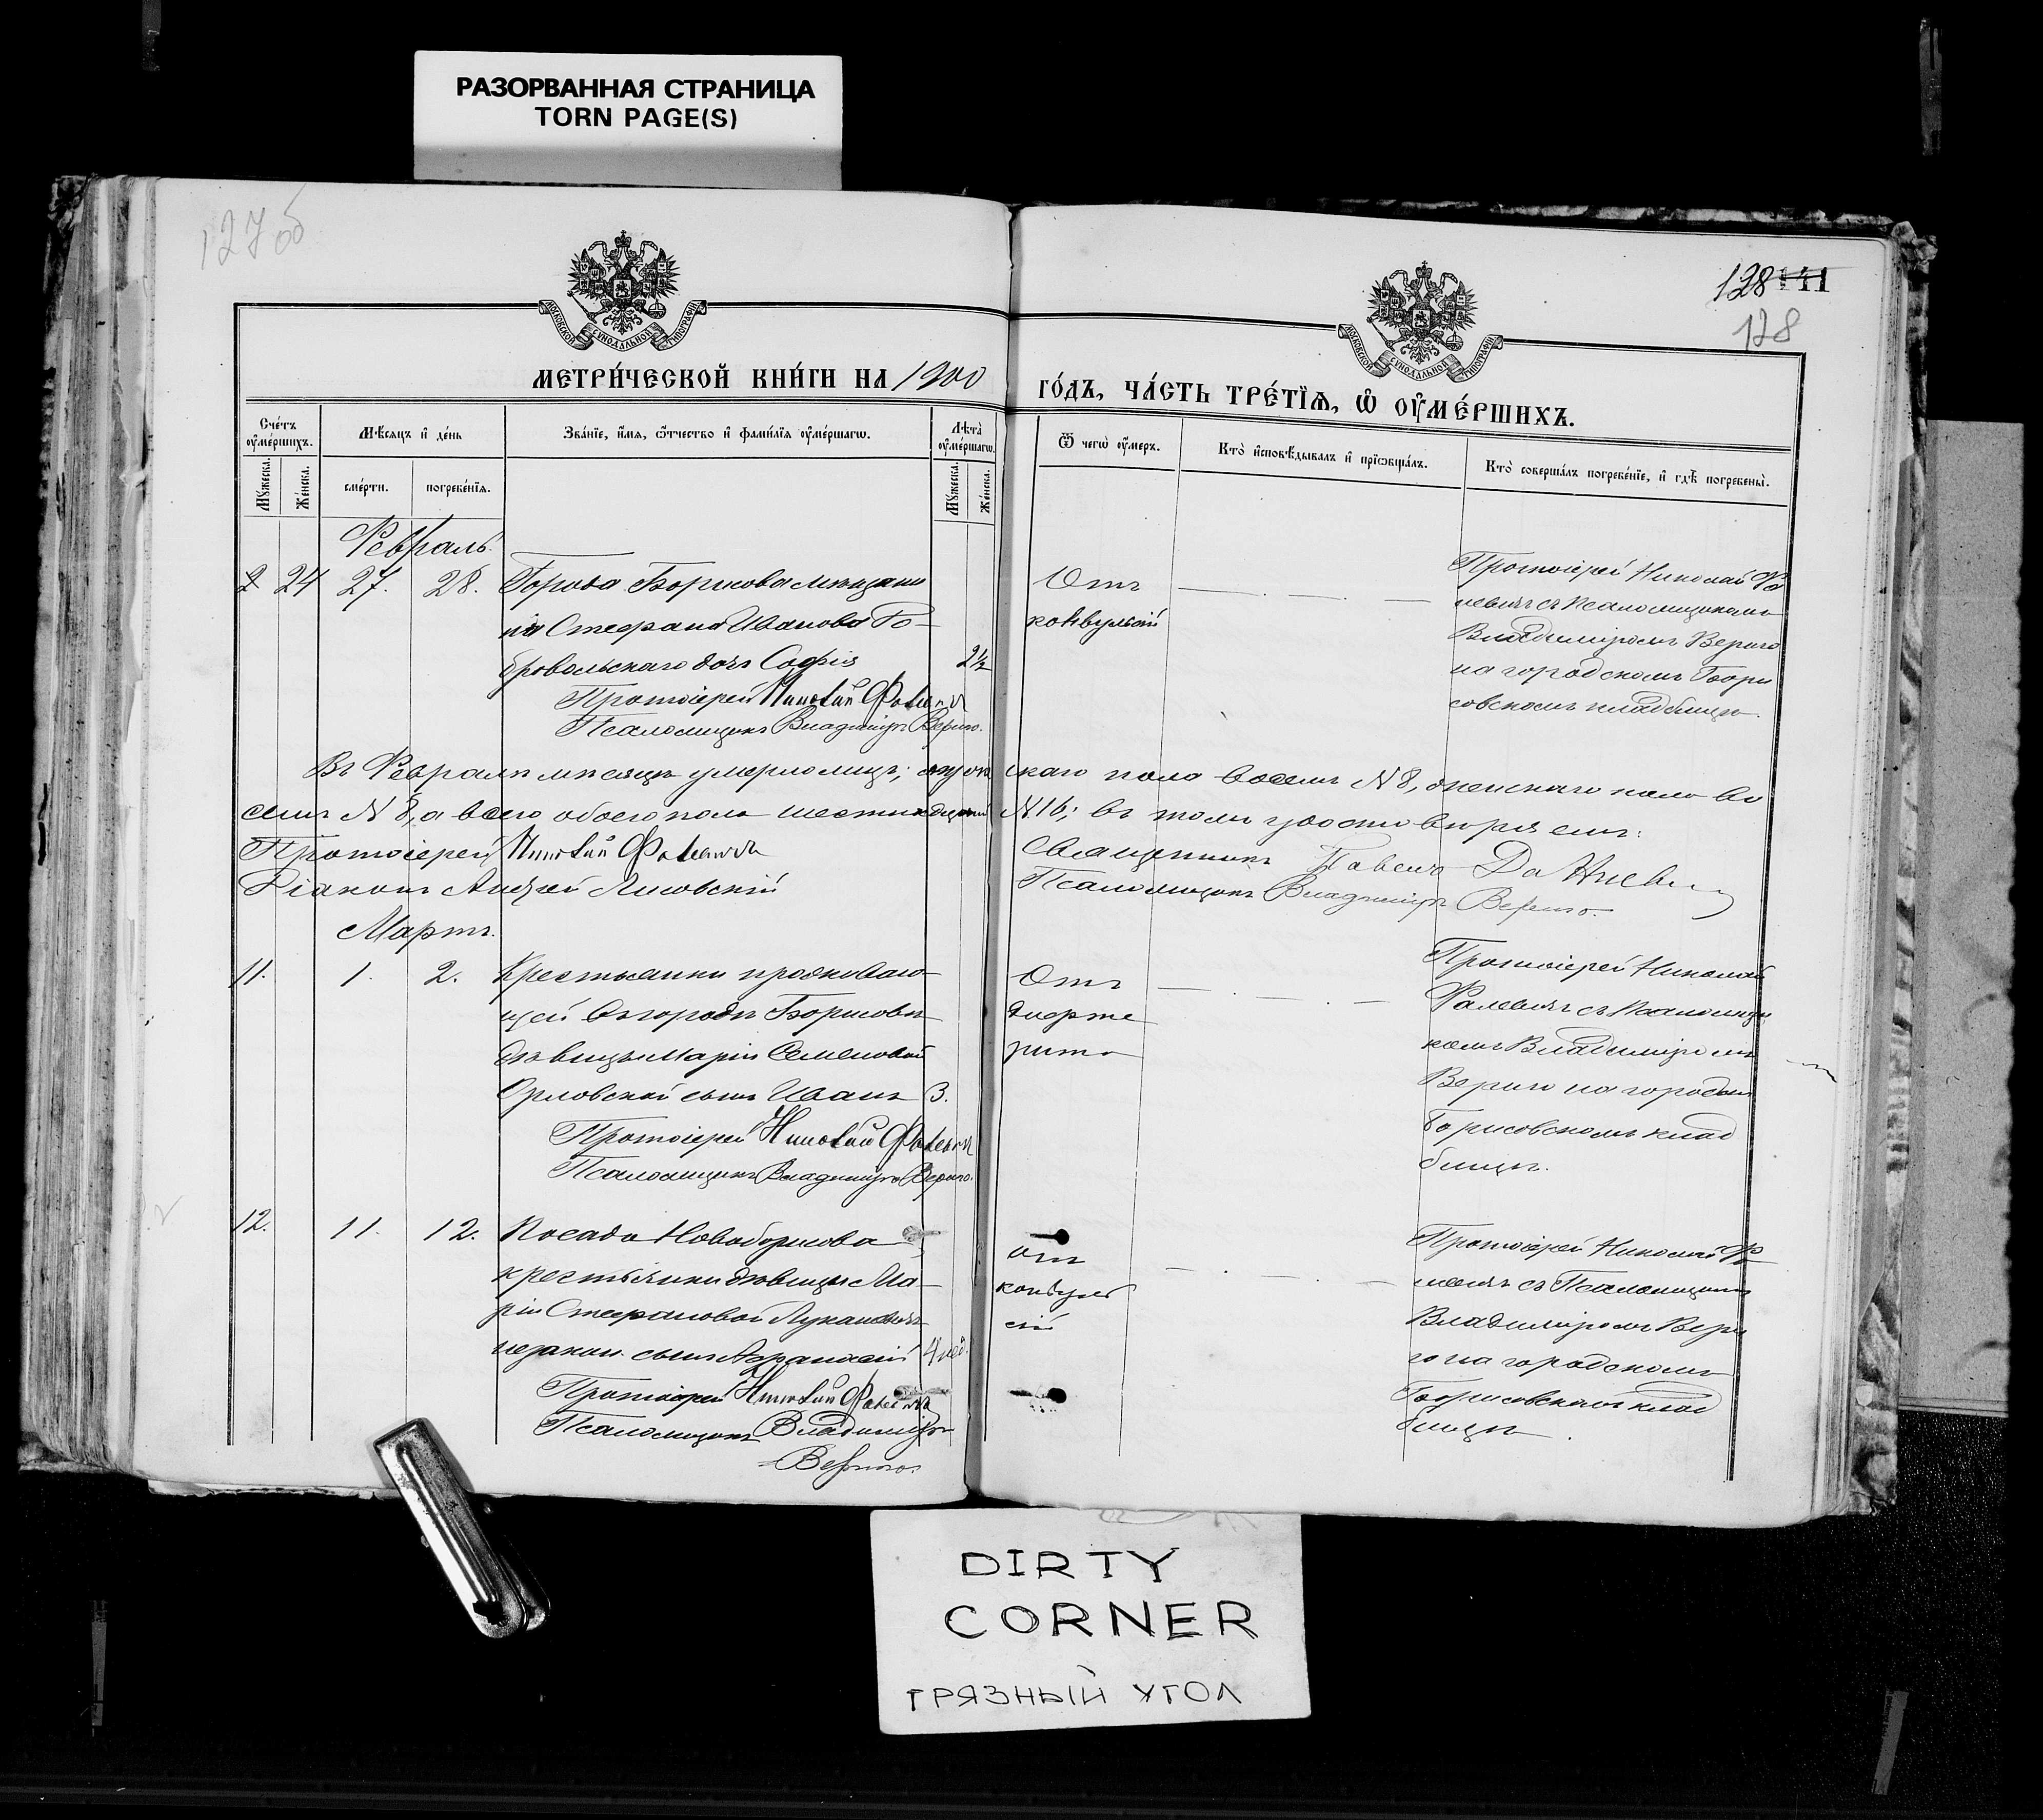 РАЗОРВАННАЯ СТРАНИЦА
TORN PAGE(S)
127об
128 141
128
МОСКОВСКОЙ СУНОДАЛЬНОЙ ТИПОГРАФІИ
МОСКОВСКОЙ СУНОДАЛЬНОЙ ТИПОГРАФІИ
МЕТРИ́ЧЕСКОЙ КНИ́ГИ НА 1900
ГО́ДЪ, ЧА́СТЬ ТРЕ́ТІѦ, Ѡ҆ ОУ҆МЕ́РШИХЪ.
Сче́тъ оу҆ме́ршихъ.
Мꙋжеска.
Же́нска.
Мѣ́сѧцъ и҆ де́нь
сме́рти.
погребе́нїѧ.
Зва́нїе, и҆́мѧ, ѻ҆́тчество и҆ фами́лїѧ оу҆ме́ршагѡ.
Лѣ́та оу҆ме́ршагѡ.
Мꙋжеска.
Же́нска.
Ѿ чегѡ̀ оу҆́меръ.
Кто̀ и҆сповѣ́дывалъ и҆ прїѡбща́лъ.
Кто̀ соверша́лъ погребе́нїе, и҆ гдѣ̀ погребены̀.
Февраль.
2 24 27. 28. Города Борисова мѣщани
на Стефана Ивано­ва До-
бровольскаго дочь Софія 2½
Протоіерей Николай Фалевичъ
Псаломщикъ Владиміръ Вериго.
Отъ
конвульсій
Протоіерей Николай Фа
левичъ съ псаломщикомъ
Владиміромъ Вериго
на городскомъ Бори
совскомъ кладбищѣ.
Въ Февралѣ мѣсяцѣ умерло лицъ; мужескаго пола восемь N 8, женскаго пола во
семь N 8, а всего обоего пола шестнадцать N 16; въ томъ удостовѣряемъ:
Протоіерей Николай Фалевичъ
Священникъ Павелъ
Діаконъ Андрей Лисовскій
Псаломщикъ Владиміръ Вериго.
Мартъ.
11. 1. 2. Крестьянки прожеваю-
щей въ городѣ Борисовѣ
дѣвицы Маріи Семеновой
Орловской сынъ Иванъ 3.
Протоіерей Николай Фалевичъ
Псаломщикъ Владиміръ Вериго.
Отъ
дифте
рита
Протоіерей Николай
Фалевичъ съ псаломщи
комъ Владиміромъ
Вериго на городск
Борисовскомъ клад
бищѣ.
12. 11. 12. Посада Новоборисова
крестьянки дѣвицы Ма-
ріи Стефановой
незакон. сынъ Афанасій 4 нед.
Протоіерей Николай Фалевичъ
Псаломщикъ Владиміръ
Вериго.
отъ
конвуль
сій
Протоіерей Николай Фа
левичъ съ Псаломщикомъ
Владиміромъ Вери
го на городскомъ
Борисовскомъ клад
бищѣ.
DIRTY
CORNER
ГРЯЗНЫЙ УГОЛ